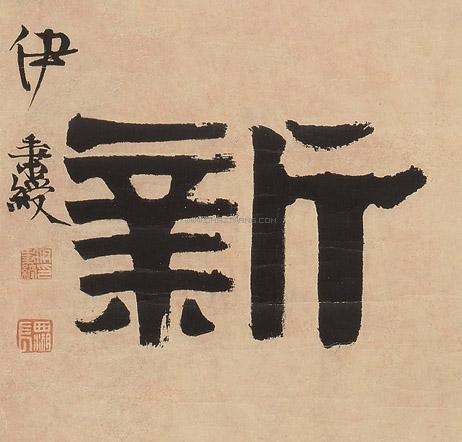 新
伊秉綬